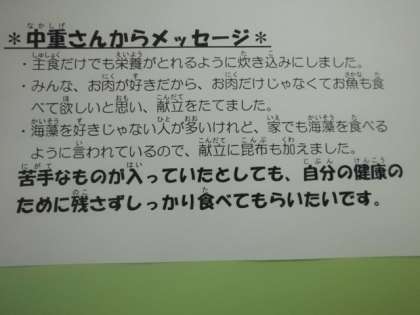 ＊中重さんからメッセージ＊
・主食だけでも栄養がとれるように炊き込みにしました。
・みんな、お肉が好きだから、お肉だけじゃなくてお魚も食
べて欲しいと思い、献立をたてました。
・海藻を好きじゃない人が多いけれど、家でも海藻を食べる
ように言われているので、献立に昆布も加えました。
苦手なものが入っていたとしても、自分の健康の
ために残さずしっかり食べてもらいたいです。